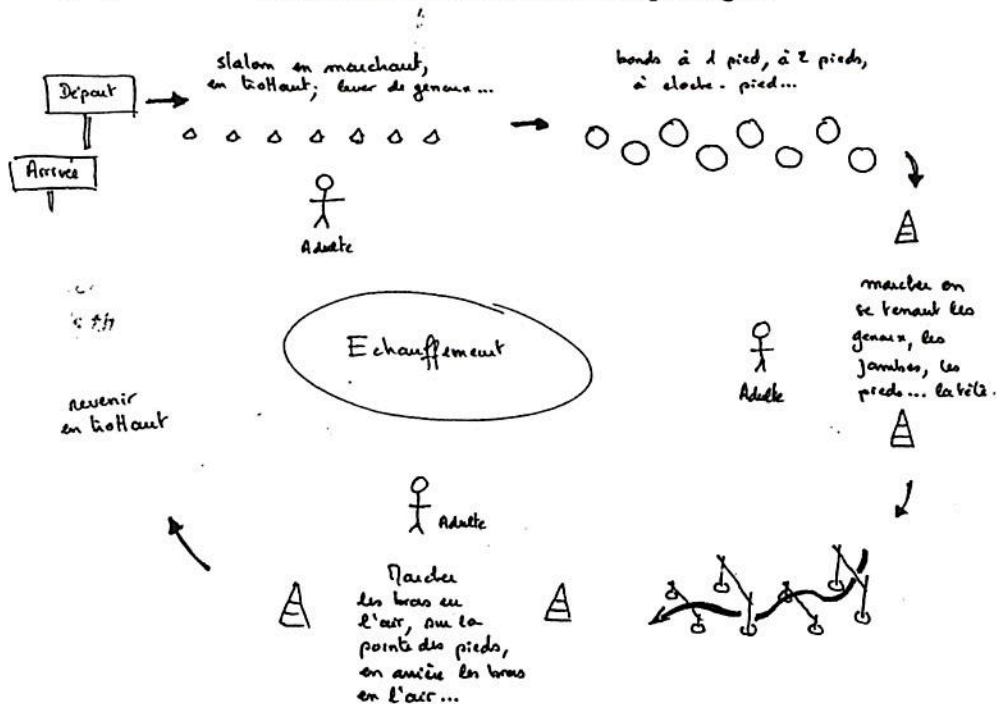 Départ
slalom en marchant,
en trottant; lever de genoux...
bonds à 1 pied, à 2 pieds,
à cloche-pied...
Arrivée
Adulte
marcher en
se tenant les
genoux, les
jambes, les
pieds... la tête.
Echauffement
Adulte
revenir
en trottant
Adulte
Marcher
les bras en
l'air, sur la
pointe des pieds,
en arrière les bras
en l'air...